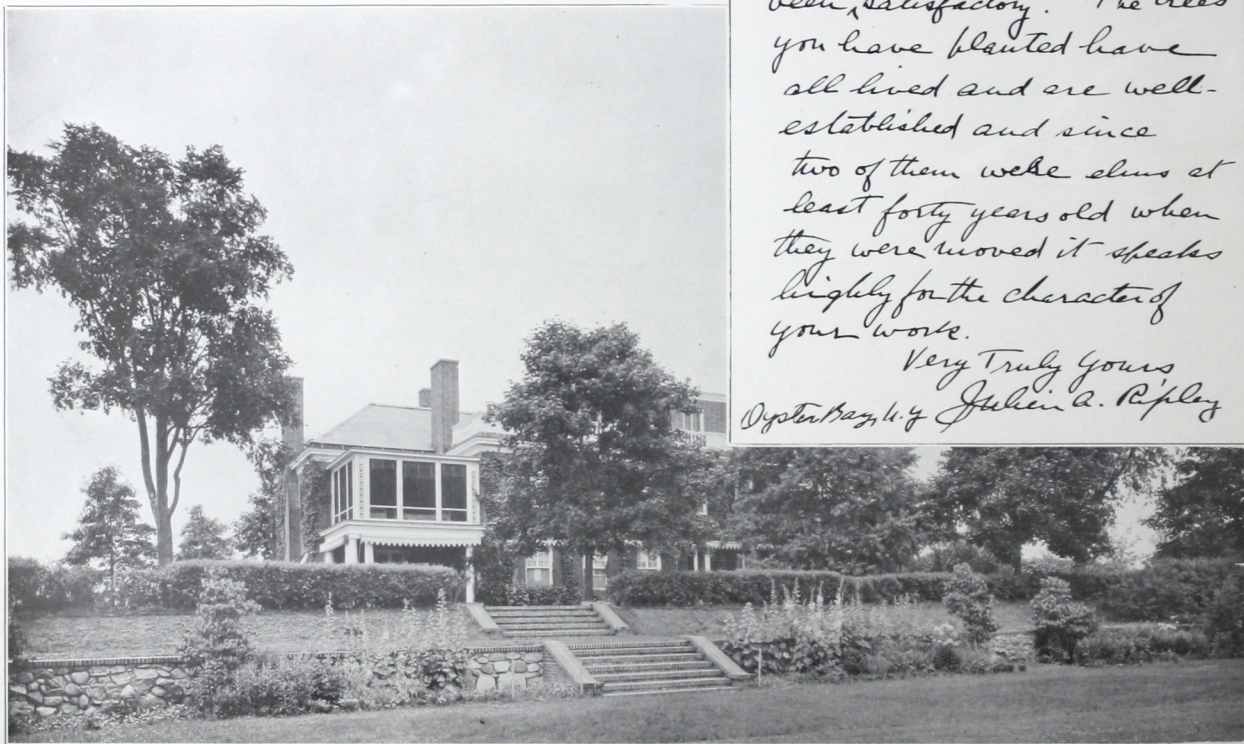 been, satisfactory. The trees
you have planted have
all lived and are well-
established and since
two of them were elms at
least forty years old when
they were moved it speaks
highly for the character of
your work.
Very Truly Yours,
Oyster Bay, N.Y Julien A. Ripley